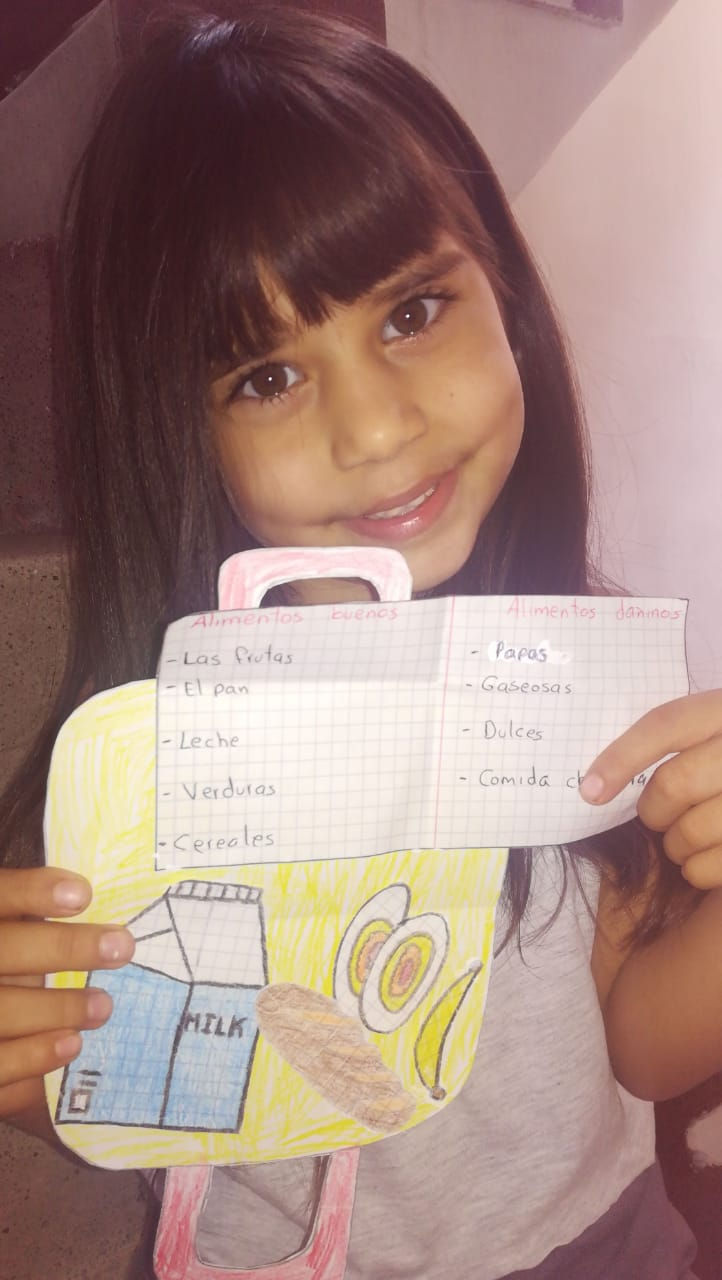 Alimentos buenos
- Las frutas
- El pan
- Leche
- Verduras
- Cereales
Alimentos daninos
- Papas
- Gaseosas
- Dulces
- Comida
MILK